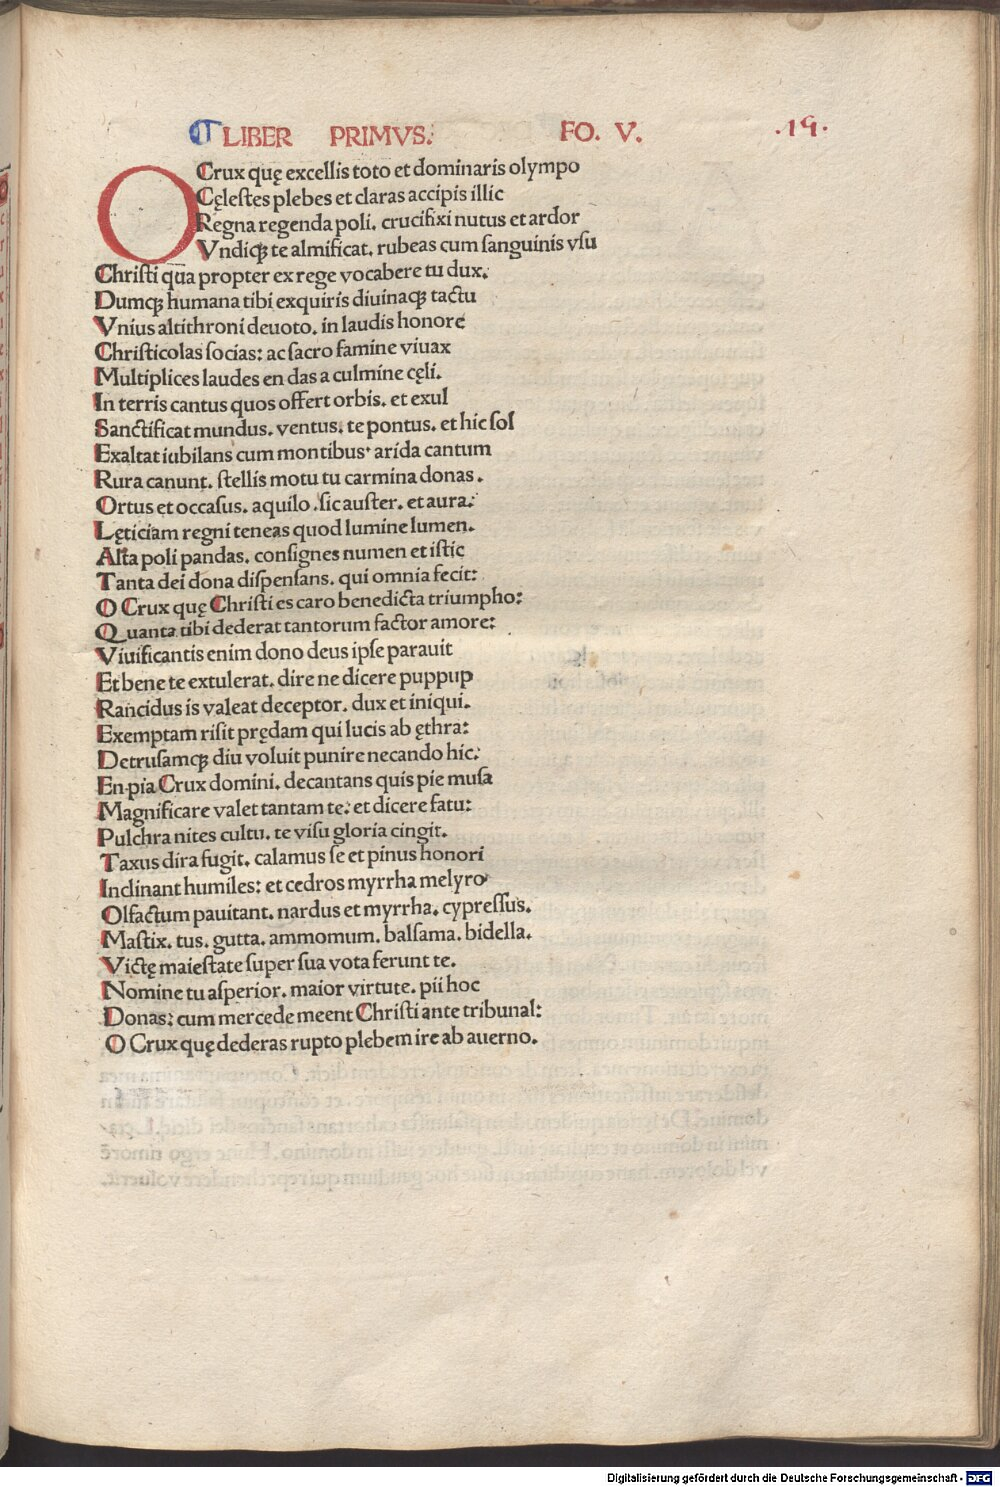 ¶ LIBER PRIMVS. FO. V. .19.
O Crux quę excellis toto et dominaris olympo
Cęlestes plebes et claras accipis illic
Regna regenda poli. crucifixi nutus et ardor
Vndiqꝫ te almificat. rubeas cum sanguinis vsu
Christi qua propter ex rege vocabere tu dux.
Dumqꝫ humana tibi exquiris diuinaqꝫ tactu
Vnius altithroni deuoto. in laudis honore
Christicolas socias: ac sacro famine viuax
Multiplices laudes en das a culmine cęli.
In terris cantus quos offert orbis. et exul
Sanctificat mundus. ventus. te pontus. et hic sol
Exaltat iubilans cum montibus. arida cantum
Rura canunt. stellis motu tu carmina donas.
Ortus et occasus. aquilo. sic auster. et aura:
Lęticiam regni teneas quod lumine lumen.
Alta poli pandas. consignes numen et istic
Tanta dei dona dispensans. qui omnia fecit:
O Crux quę Christi es caro benedicta triumpho:
Quanta tibi dederat tantorum factor amore:
Viuificantis enim dono deus ipse parauit
Et bene te extulerat. dire ne dicere puppup
Rancidus is valeat deceptor. dux et iniqui.
Exemptam risit prędam qui lucis ab ęthra:
Detrusamqꝫ diu voluit punire necando hic:
En pia Crux domini. decantans quis pie musa
Magnificare valet tantam te: et dicere fatu:
Pulchra nites cultu. te visu gloria cingit.
Taxus dira fugit. calamus se et pinus honori
Inclinant humiles: et cedros myrrha melyro
Olfactum pauitant. nardus et myrrha. cypressus.
Mastix. tus. gutta. ammomum. balsama. bidella.
Victę maiestate super sua vota ferunt te.
Nomine tu asperior. maior virtute. pii hoc
Donas: cum mercede meent Christi ante tribunal:
O Crux quę dederas rupto plebem ire ab auerno.
Digitalisierung gefördert durch die Deutsche Forschungsgemeinschaft - DFG